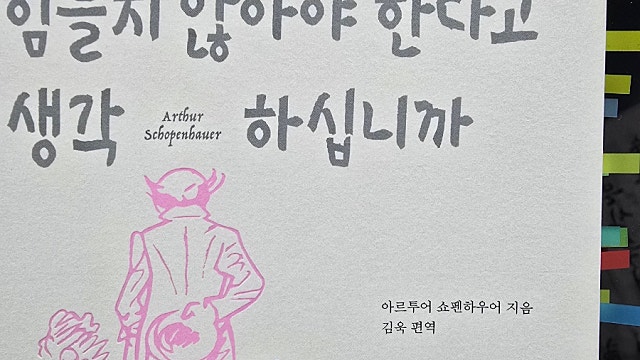 힘들지 않아야 한다고
생각
Arthur
Schopenhauer
하십니까
아르투어 쇼펜하우어 지음
김욱 편역